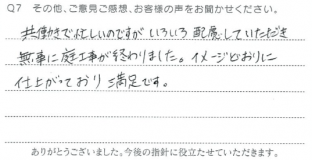 Q7 その他、ご意見ご感想、お客様の声をお聞かせください。
共働きで忙しいのですが いろいろ 配慮していただき
無事に庭工事が終わりました。イメージどおりに
仕上がっており 満足です。
ありがとうございました。今後の指針に役立たせていただきます。